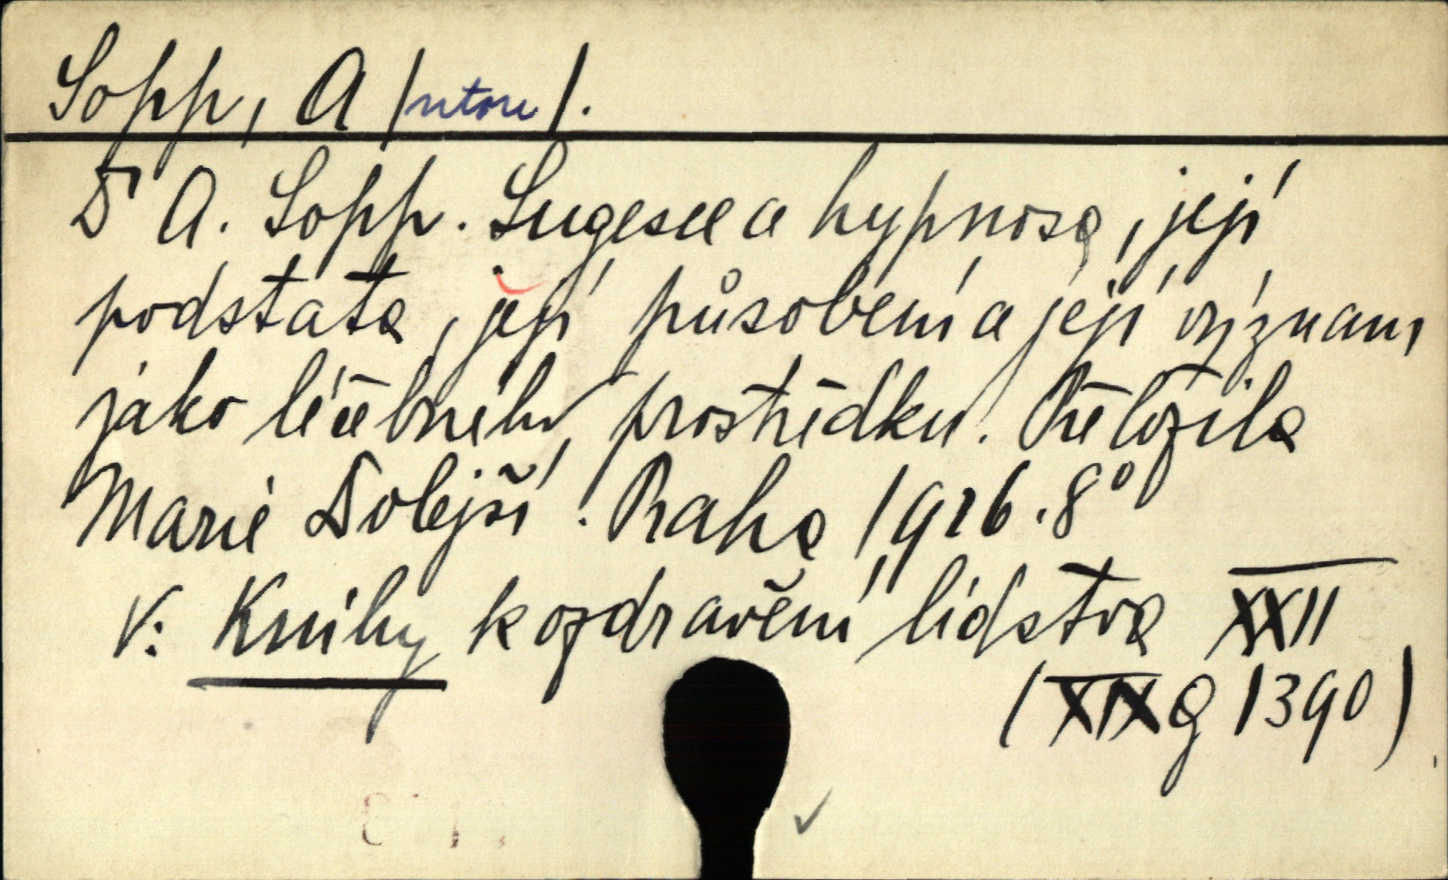 Sopp, A /ntonín/.
Dr A. Sopp. Sugesce a hypnosa, její
podstata, její působení a její význam
jako léčebného prostředku. Přeložila
Marie Dolejší. Praha 1926. 8°
V: Knihy k ozdravění lidstva XXII
(XIX G 1390)